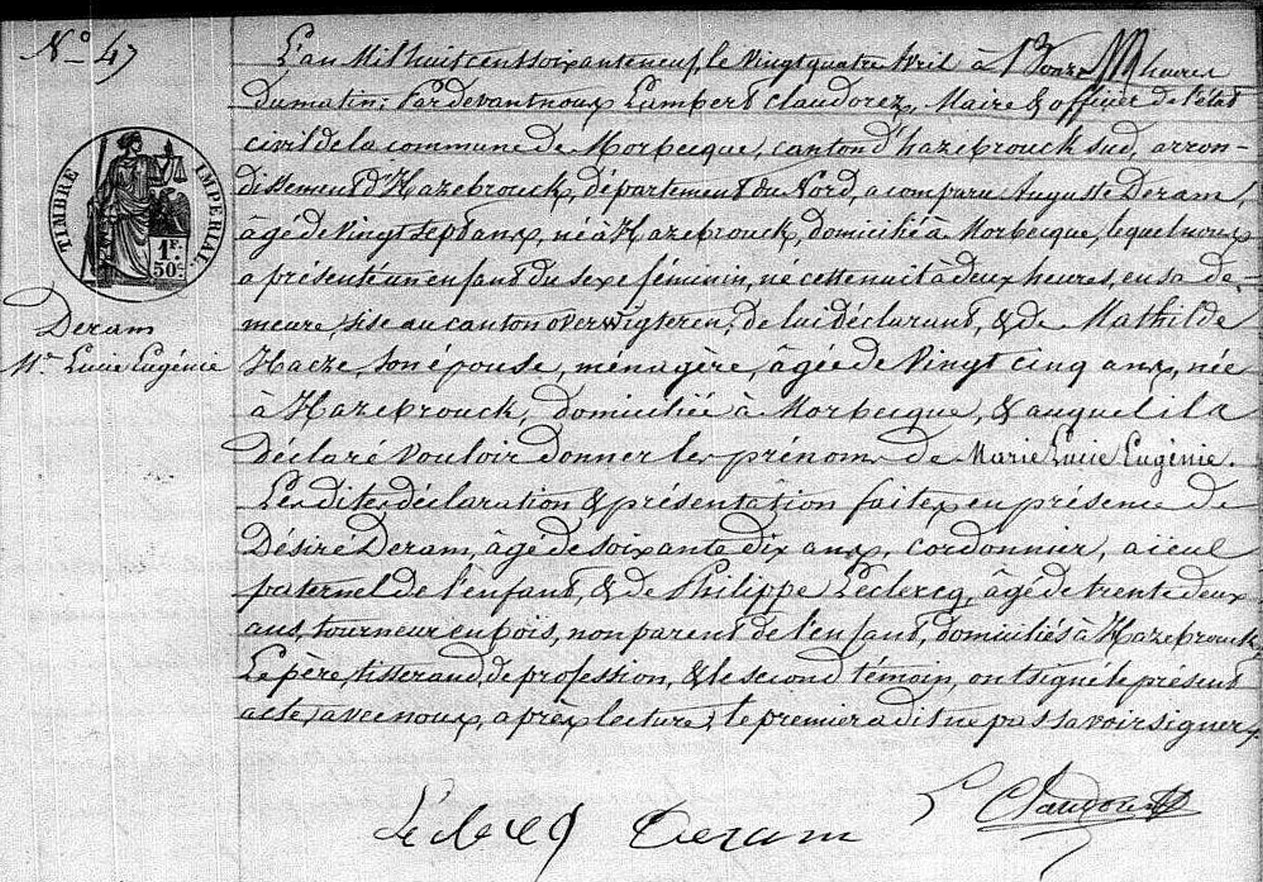 N° 47
L'an Mil huit cent soixante neuf, le Vingt quatre Avril à onze heures
du matin; Par devant nous Lambert Claudorez, Maire & officier de l'état
civil de la commune de Morbecque, canton d'hazebrouck sud, arron-
dissement d'Hazebrouck, département du Nord, a comparu Auguste Deram,
âgé de Vingt sept ans, né à Hazebrouck, domicilié à Morbecque, lequel nous
a présenté un enfant du sexe féminin, né cette nuit à deux heures, en sa de-
meure, sise au canton overwigteren, de lui déclarant, & de Mathilde
Haeze, son épouse, ménagère, âgée de Vingt cinq ans, née
à Hazebrouck, domiciliée à Morbecque, & auquel il a
déclaré vouloir donner les prénoms de Marie Lucie Eugénie.
Les dites déclaration & présentation faites en présence de
Désiré Deram, âgé de soixante dix ans, cordonnier, aïeul
paternel de l'enfant, & de Philippe Leclercq, âgé de trente deux
ans, tourneur en bois, non parent de l'enfant, domiciliés à Hazebrouck,
Le père, tisserand de profession, & le second témoin, ont signé le présent
acte, avec nous, après lecture; le premier a dit ne pas savoir signer
TIMBRE IMPERIAL.
1F.
50c.
Deram
Mie Lucie Eugénie
Leclercq Deram L Claudorez